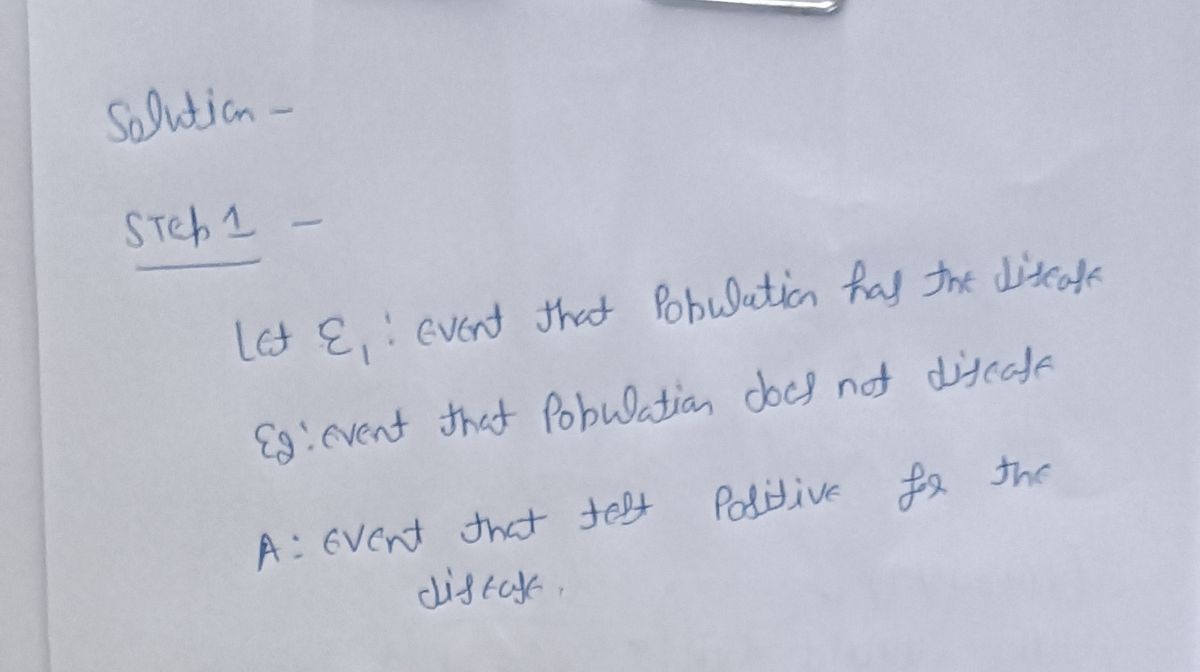 Solution -
Step 1 -
Let E₁ : event that Population has the disease
E₂ : event that Population does not disease
A : event that test Positive for the
disease.